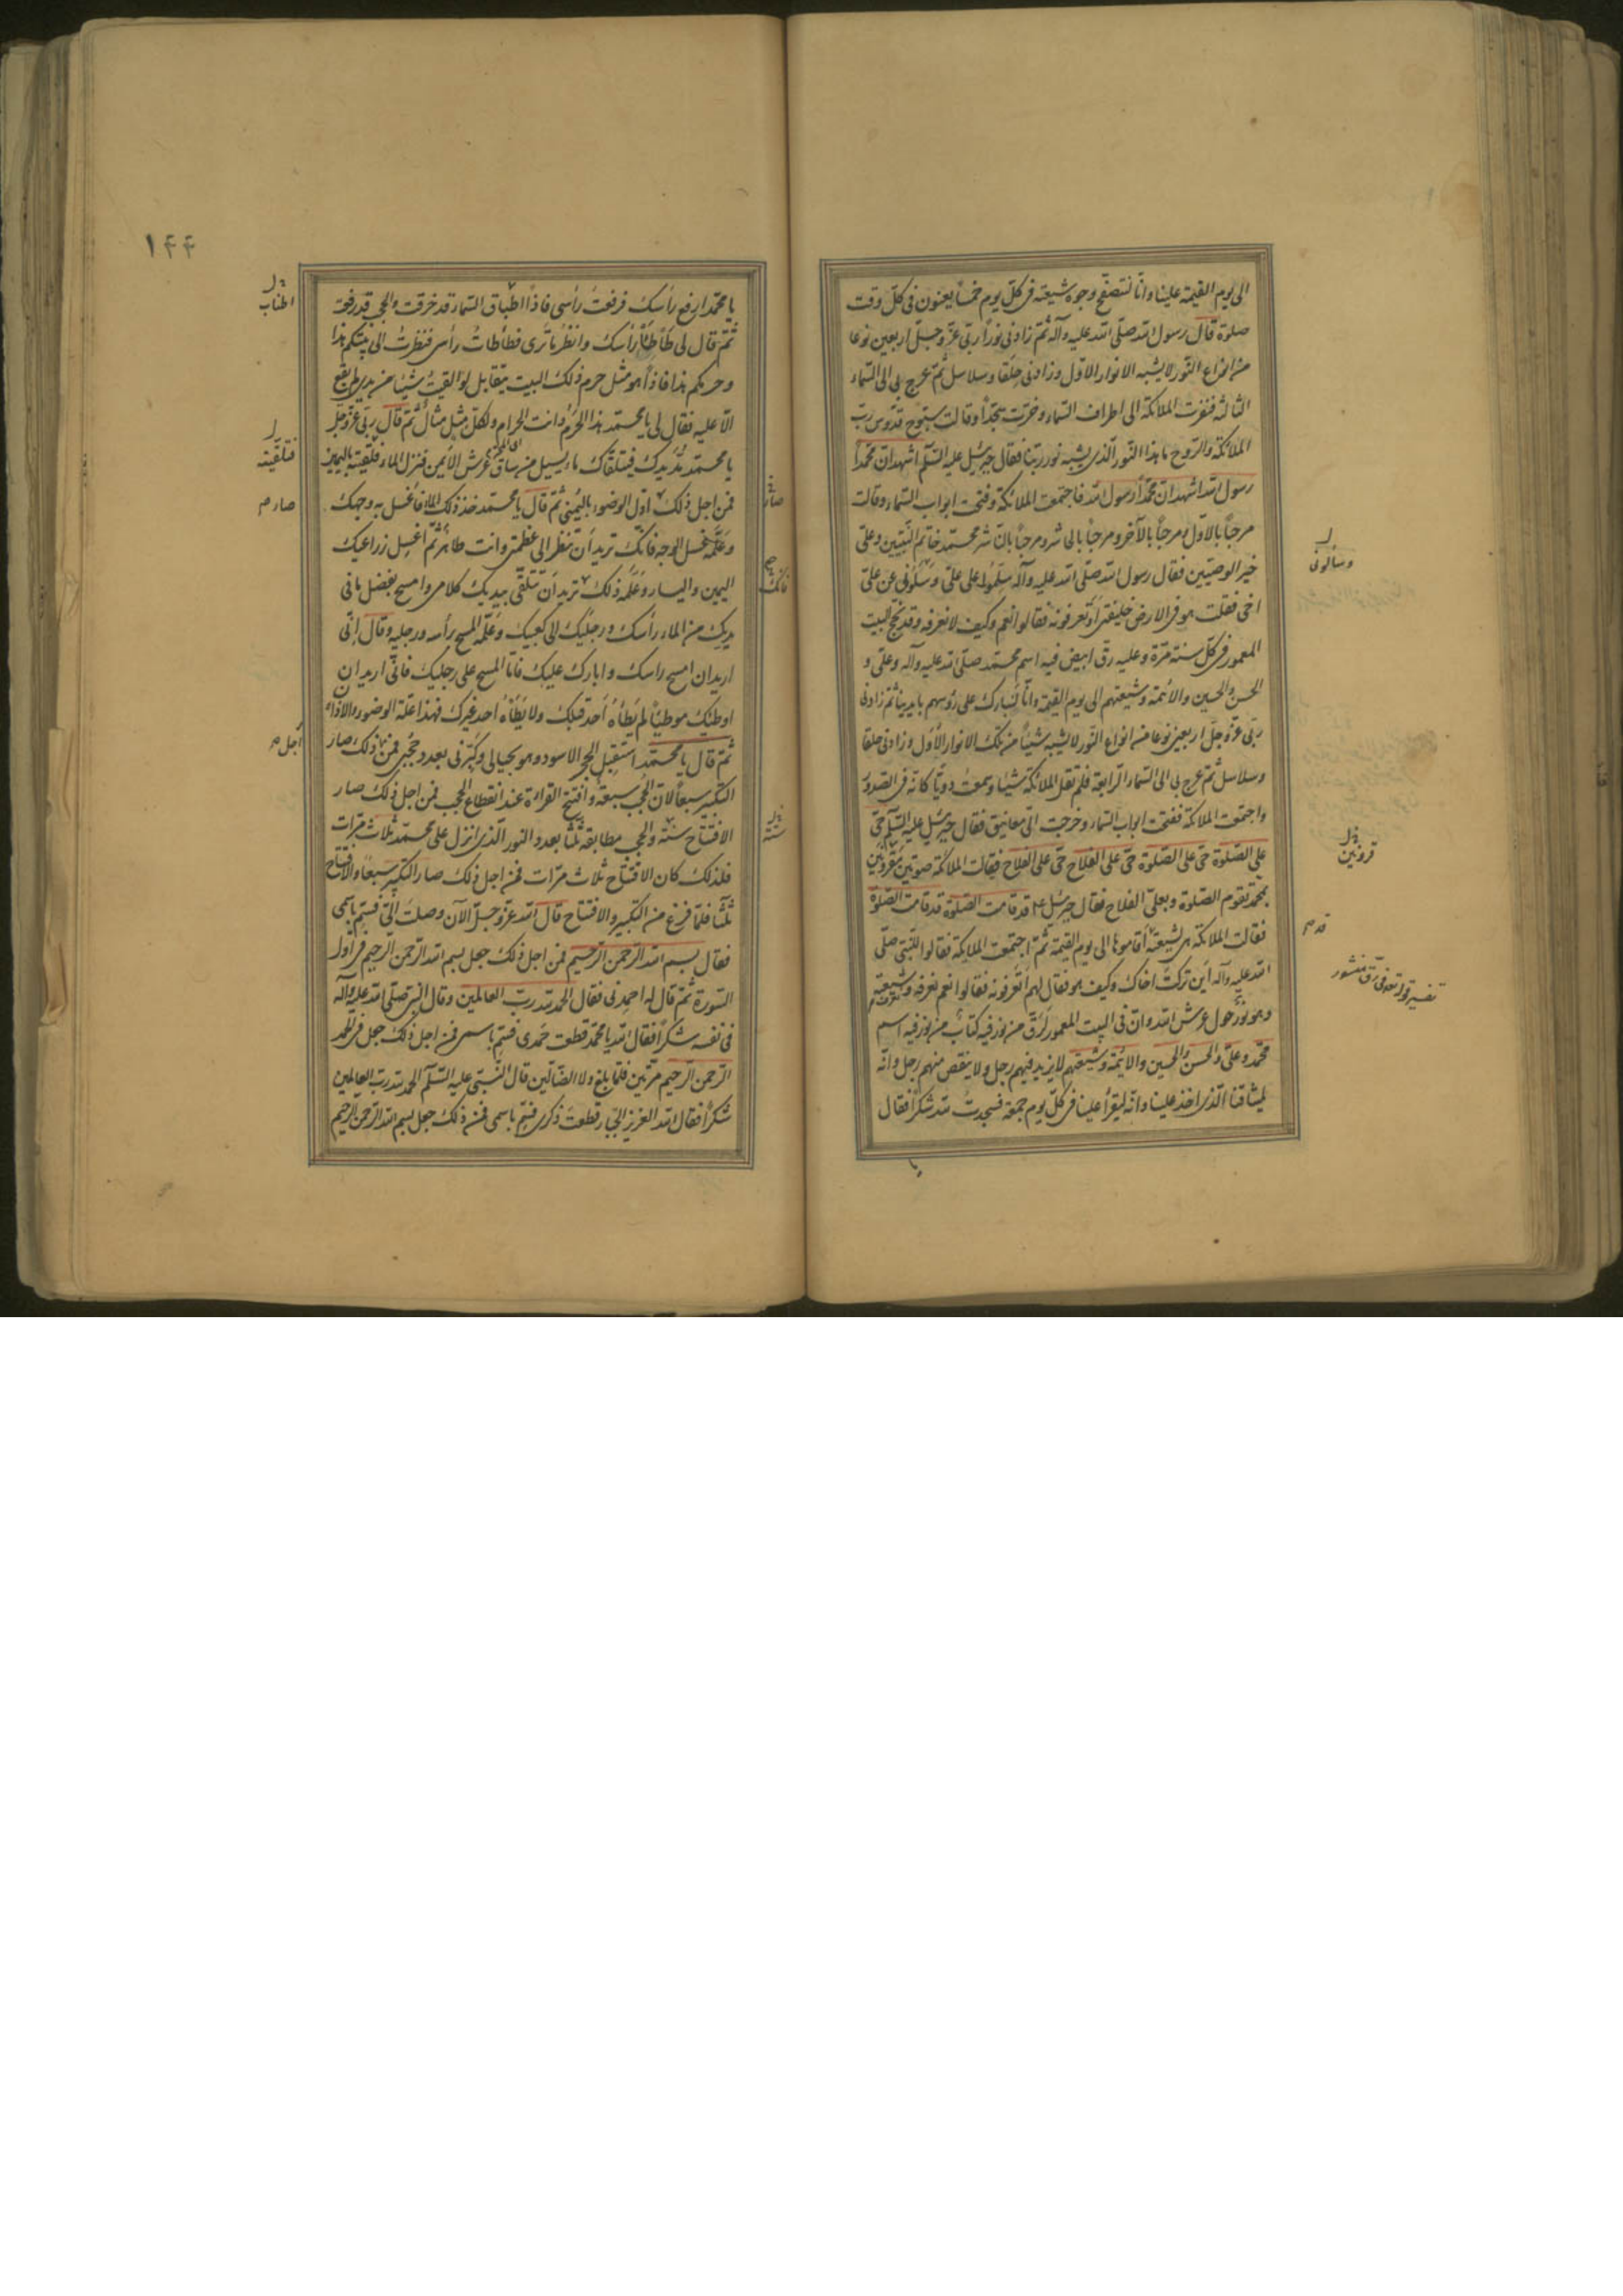 الى يوم القيمة علينا وانا لنتصفح وجوه شيعته فى كل يوم خمساً يعنون فى كل وقت
صلوة قال رسول الله صلى الله عليه وآله ثم زادنى نوراً ربى عز وجل اربعين نوعا
من انواع النور لا يشبه الانوار الاول وزادنى حلقا وسلاسل ثم عرج بى الى السماء
الثالثة فنفرت الملائكة الى اطراف السماء وخرت سجداً وقالت سبوح قدوس رب
الملائكة والروح ما هذا النور الذى يشبه نور ربنا فقال جبرئيل عليه السلم اشهد ان محمداً
رسول الله اشهد ان محمداً رسول الله فاجتمعت الملائكة وفتحت ابواب السماء وقالت
مرحباً بالاول ومرحباً بالآخر ومرحباً بالحاشر ومرحباً بالناشر محمد خاتم النبيين وعلى
خير الوصيين فقال رسول الله صلى الله عليه وآله سلموا على على وسلونى عن على
اخى فقلت هو فى الارض خليفتى أتعرفونه فقالوا نعم وكيف لا نعرفه وقد نحج البيت
المعمور فى كل سنة مرة وعليه رق ابيض فيه اسم محمد صلى الله عليه وآله وعلى و
الحسن والحسين والائمة وشيعتهم الى يوم القيمة وانا لنبارك على رؤسهم بايدينا ثم زادنى
ربى عز وجل اربعين نوعا من انواع النور لا يشبه شيئاً من تلك الانوار الاول وزادنى حلقا
وسلاسل ثم عرج بى الى السماء الرابعة فلم تقل الملائكة شيئا وسمعت دوياً كانه فى الصدور
واجتمعت الملائكة ففتحت ابواب السماء وخرجت الى معانيق فقال جبرئيل عليه السلم حى
على الصلوة حى على الصلوة حى على الفلاح حى على الفلاح فقالت الملائكة صوتين مقرونين
بمحمد تقوم الصلوة وبعلى الفلاح فقال جبرئيل ع قد قامت الصلوة قد قامت الصلوة
فقالت الملائكة هى لشيعته أقاموها الى يوم القيمة ثم اجتمعت الملائكة فقالوا للنبى صلى
الله عليه وآله أين تركت اخاك وكيف هو فقال لهم أتعرفونه فقالوا نعم نعرفه وشيعته
وهو نور حول عرش الله وان فى البيت المعمور لرق من نور فيه كتاب من نور فيه اسم
محمد وعلى والحسن والحسين والائمة وشيعتهم لا يزيد فيهم رجل ولا ينقص منهم رجل وانه
لميثاقنا الذى اخذ علينا وانه ليقرأ علينا فى كل يوم جمعة فسجدت لله شكراً فقال
وسألونى
قرونين
قد م
يا
١٤٤
يا محمد ارفع رأسك فرفعت رأسى فاذا اطباق السماء قد خرقت والحجب قد رفعت
ثم قال لى طأطأ رأسك وانظر ما ترى فطأطأت رأسى فنظرت الى بيتكم هذا
وحرمكم هذا فاذا هو مثل حرم ذلك البيت يتقابل لو القيت شيئا من يدى لم يقع
الا عليه فقال لى يا محمد هذا الحرم وانت الحرام ولكل مثل مثال ثم قال ربى عز وجل
يا محمد مد يدك فيتلقاك ماء يسيل من ساق عرش الايمن فنزل الماء فتلقيته باليمين
فمن اجل ذلك اول الوضوء باليمنى ثم قال يا محمد خذ ذلك الماء فاغسل به وجهك
وعلمه غسل الوجه فانك تريد أن تنظر الى عظمتى وانت طاهر ثم اغسل ذراعيك
اليمين واليسار وعلمه ذلك تريد ان تتلقى بيديك كلامى وامسح بفضل ما فى
يديك من الماء رأسك ورجليك الى كعبيك وعلمه المسح رأسه ورجليه وقال انى
اريد ان امسح راسك وابارك عليك فاما المسح على رجليك فانى اريد ان
اوطئك موطئاً لم يطأه أحد قبلك ولا يطأه احد غيرك فهذا علة الوضوء والاذان
ثم قال يا محمد استقبل الحجر الاسود وهو بحيالى وكبرنى بعدد حجبى فمن ذلك صار
التكبير سبعاً لان الحجب سبعة وافتتح القراءة عند انقطاع الحجب فمن اجل ذلك صار
الافتتاح سنة والحجب مطابقة ثلثا بعدد النور الذى انزل على محمد ثلاث مرات
فلذلك كان الافتتاح ثلاث مرات فمن اجل ذلك صار التكبير سبعاً والافتتاح
ثلثا فلما فرغ من التكبير والافتتاح قال الله عز وجل الآن وصلت الى فسم باسمى
فقال بسم الله الرحمن الرحيم فمن اجل ذلك جعل بسم الله الرحمن الرحيم فى اول
السورة ثم قال له احمدنى فقال الحمد لله رب العالمين وقال النبى صلى الله عليه وآله
فى نفسه شكراً فقال الله يا محمد قطعت حمدى فسم باسمى فمن اجل ذلك جعل فى الحمد
الرحمن الرحيم مرتين فلما بلغ ولا الضالين قال النبى عليه السلم الحمد لله رب العالمين
شكراً فقال الله العزيز الجبار قطعت ذكرى فسم باسمى فمن ذلك جعل بسم الله الرحمن الرحيم
اطناب
فتلقيته
صار م
أجل م
صار
فانك
سنة